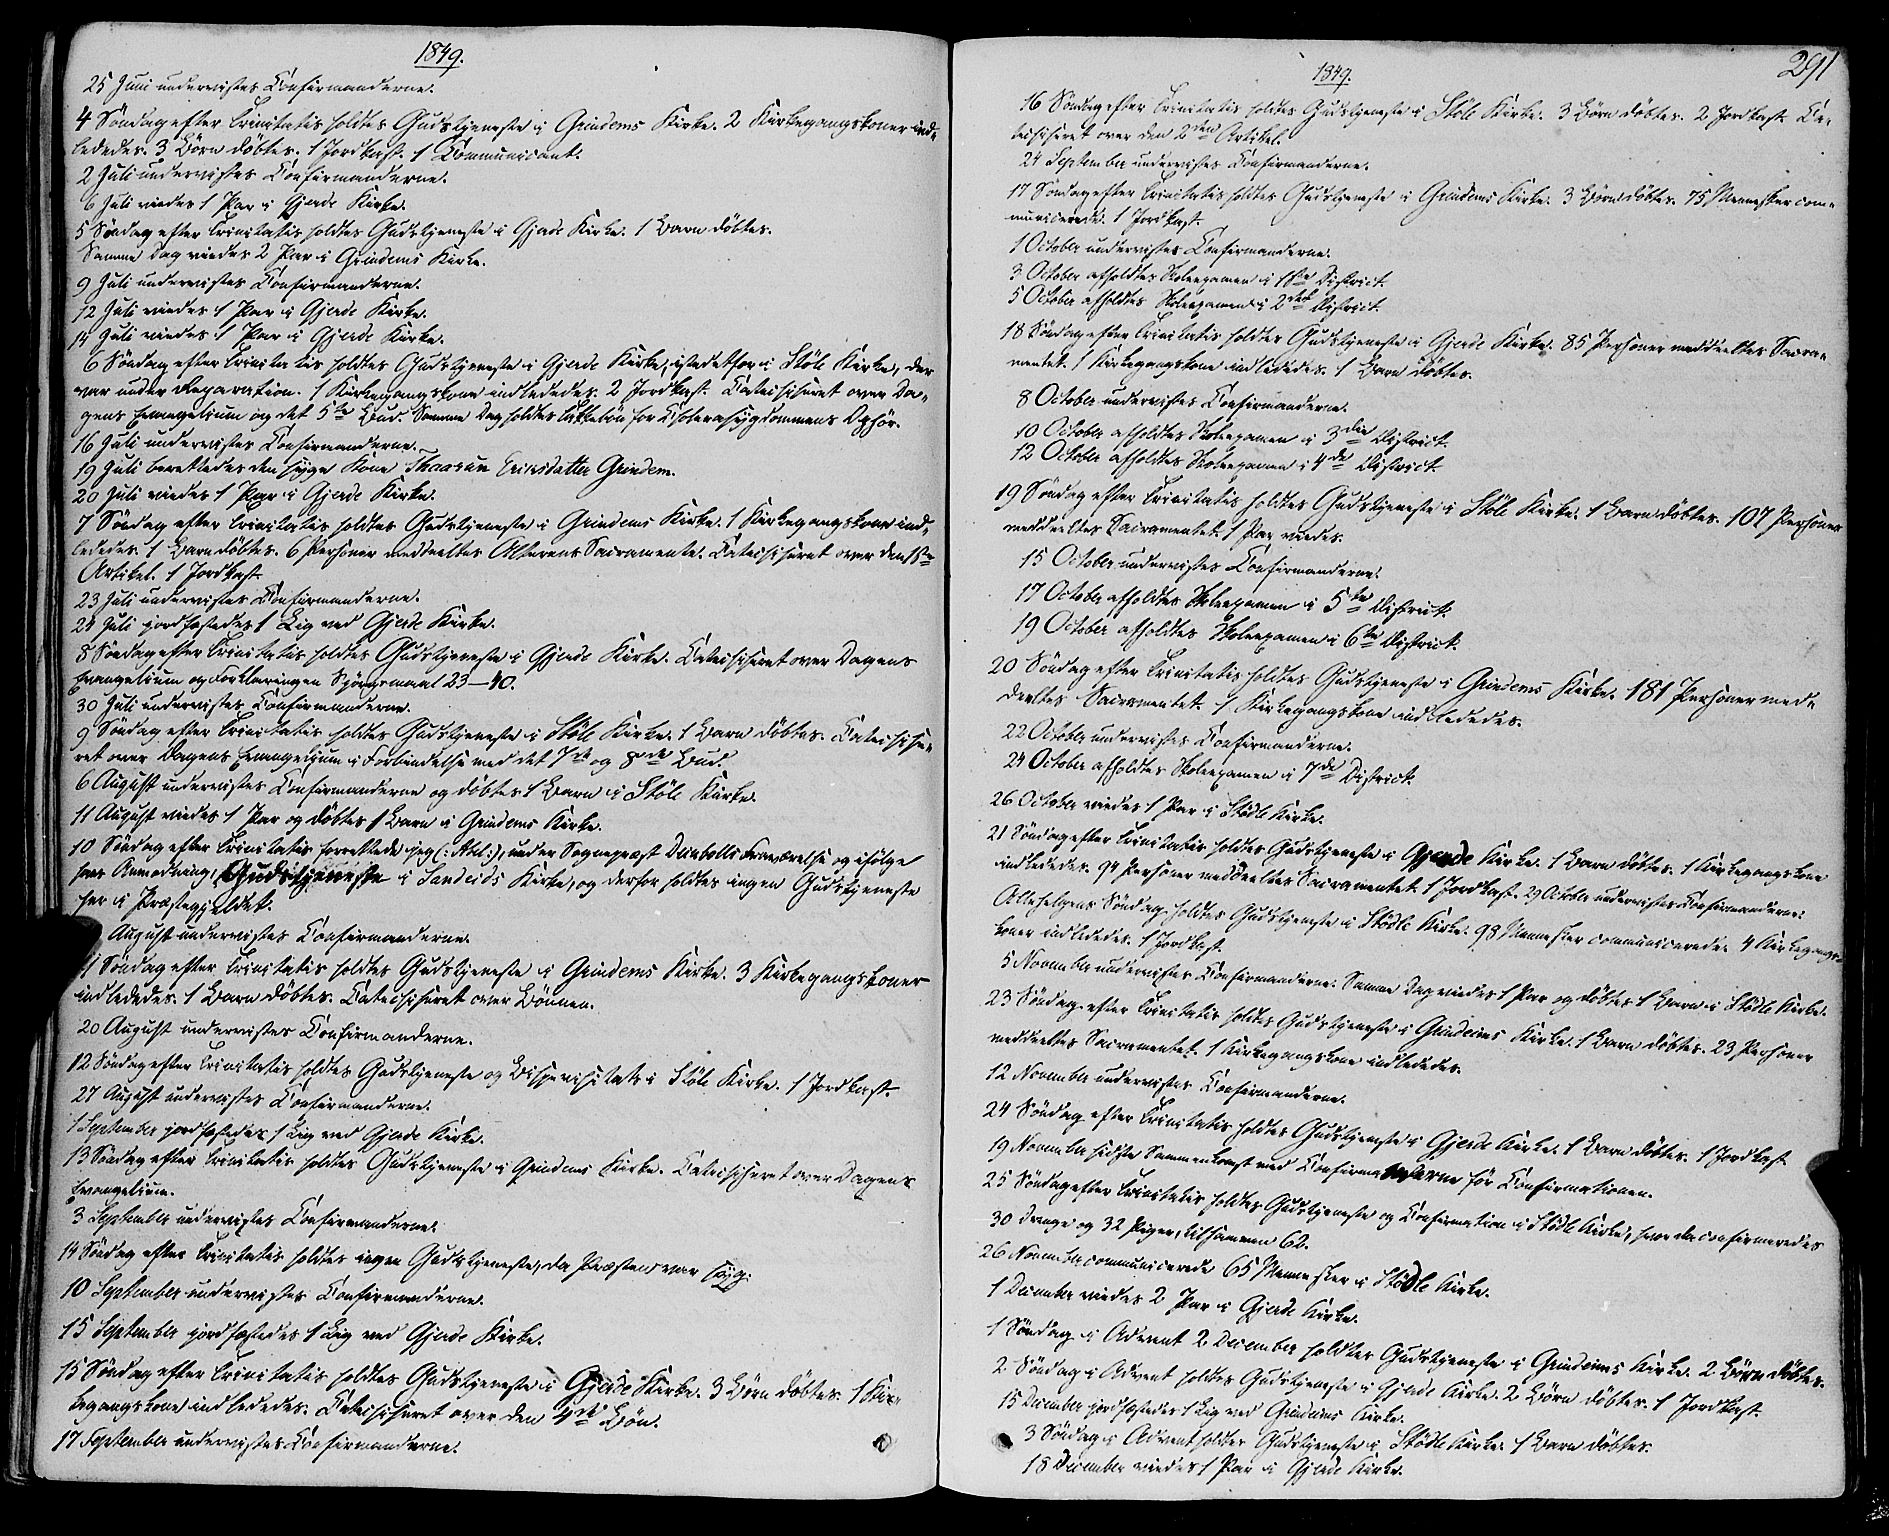 1849.
25 Juni undervistes Confirmanderne.
4 Søndag efter Trinitatis holdtes Gudstjeneste i Grindems Kirke. 2 Kirkegangskoner ind-
lededes. 3 Børn døbtes. 1 Jordkast. 1 Communicant.
2 Juli undervistes Confirmanderne.
6 Juli viedes 1 Par i Gjerde Kirke.
5 Søndag efter Trinitatis holdtes Gudstjeneste i Gjerde Kirke. 1 Barn døbtes.
Samme Dag viedes 2 Par i Grindems Kirke.
9 Juli undervistes Confirmanderne.
12 Juli viedes 1 Par i Gjerde Kirke.
14 Juli viedes 1 Par i Gjerde Kirke.
6 Søndag efter Trinitatis holdtes Gudstjeneste i Gjerde Kirke, istedetfor i Støle Kirke, der
var under Reparation. 1 Kirkegangskone indlededes. 2 Jordkast. Catechiseret over Da-
gens Evangelium og det 5te Bud. Samme Dag holdtes Takkebøn for Cholerasygdommens Ophør.
16 Juli undervistes Confirmanderne.
19 Juli berettedes den syge Kone Thaarun Ericsdatter Grindem.
20 Juli viedes 1 Par i Gjerde Kirke.
7 Søndag efter Trinitatis holdtes Gudstjeneste i Grindems Kirke. 1 Kirkegangskone ind-
lededes. 1 Barn døbtes. 6 Personer meddeeltes Alterens Sacramente. Catechiseret over den 1ste
Artikel. 1 Jordkast.
23 Juli undervistes Confirmanderne.
24 Juli jordfæstedes 1 Lig ved Gjerde Kirke.
8 Søndag efter Trinitatis holdtes Gudstjeneste i Gjerde Kirke. Catechiseret over Dagens
Evangelium og Forklaringen Spørgsmaal 23–40.
30 Juli undervistes Confirmanderne.
9 Søndag efter Trinitatis holdtes Gudstjeneste i Støle Kirke. 1 Barn døbtes. Catechise-
ret over Dagens Evangelium i Forbindelse med det 7de og 8de Bud.
6 August undervistes Confirmanderne og døbtes 1 Barn i Støle Kirke.
11 August viedes 1 Par og døbtes 1 Barn i Grindems Kirke.
10 Søndag efter Trinitatis forrettede jeg, under Sognepræst Fraværelse og ifølge
hans Anmodning, Gudstjeneste i Sandeids Kirke, og derfor holdtes ingen Gudstjeneste
her i Præstegjeldet.
August undervistes Confirmanderne.
11 Søndag efter Trinitatis holdtes Gudstjeneste i Grindems Kirke. 3 Kirkegangskoner
indlededes. 1 Barn døbtes. Catechiseret over Bønnen.
20 August undervistes Confirmanderne.
12 Søndag efter Trinitatis holdtes Gudstjeneste og Bispevisitats i Støle Kirke. 1 Jordkast.
27 August undervistes Confirmanderne.
1 September jordfæstedes 1 Lig ved Gjerde Kirke.
13 Søndag efter Trinitatis holdtes Gudstjeneste i Grindems Kirke. Catechiseret over Dagens
Evangelium.
3 September undervistes Confirmanderne.
14 Søndag efter Trinitatis holdtes ingen Gudstjeneste, da Præsten var syg.
10 September undervistes Confirmanderne.
15 September jordfæstedes 1 Lig ved Gjerde Kirke.
15 Søndag efter Trinitatis holdtes Gudstjeneste i Gjerde Kirke. 3 Børn døbtes. 1 Kir-
kegangskone indlededes. Catechiseret over den 4de Bøn.
17 September undervistes Confirmanderne.
291
1849.
16 Søndag efter Trinitatis holdtes Gudstjeneste i Støle Kirke. 3 Børn døbtes. 2 Jordkast. Ca-
techiseret over den 2den Artikel.
24 September undervistes Confirmanderne.
17 Søndag efter Trinitatis holdtes Gudstjeneste i Grindems Kirke. 3 Børn døbtes. 75 Mennesker com-
municerede. 1 Jordkast.
1 October undervistes Confirmanderne.
3 October afholdtes Skoleexamen i 1ste District.
5 October afholdtes Skoleexamen i 2det District.
18 Søndag efter Trinitatis holdtes Gudstjeneste i Gjerde Kirke. 85 Personer meddeeltes Sacra-
mentet. 1 Kirkegangskone indlededes. 1 Barn døbtes.
8 October undervistes Confirmanderne.
10 October afholdtes Skoleexamen i 3die District.
12 October afholdtes Skoleexamen i 4de District.
19 Søndag efter Trinitatis holdtes Gudstjeneste i Støle Kirke. 1 Barn døbtes. 107 Personer
meddeeltes Sacramentet. 1 Par viedes.
15 October undervistes Confirmanderne.
17 October afholdtes Skoleexamen i 5te District.
19 October afholdtes Skoleexamen i 6te District.
20 Søndag efter Trinitatis holdtes Gudstjeneste i Grindems Kirke. 181 Personer med-
deeltes Sacramentet. 1 Kirkegangskone indlededes.
22 October undervistes Confirmanderne.
24 October afholdtes Skoleexamen i 7de District.
26 October viedes 1 Par i Stødle Kirke.
21 Søndag efter Trinitatis holdtes Gudstjeneste i Gjerde Kirke. 1 Barn døbtes. 1 Kirkegangskone
indlededes. 94 Personer meddeeltes Sacramentet. 1 Jordkast. 29 October undervistes Confirmanderne.
Allehelgens Søndag holdtes Gudstjeneste i Stødle Kirke. 98 Mennesker communicerede. 4 Kirkegangs-
koner indlededes. 1 Jordkast.
5 November undervistes Confirmanderne. Samme Dag viedes 1 Par og døbtes 1 Barn i Stødle Kirke.
23 Søndag efter Trinitatis holdtes Gudstjeneste i Grindeims Kirke. 1 Barn døbtes. 23 Personer
meddeeltes Sacramentet. 1 Kirkegangskone indlededes.
12 November undervistes Confirmanderne.
24 Søndag efter Trinitatis holdtes Gudstjeneste i Gjerde Kirke. 1 Barn døbtes. 1 Jordkast
19 November sidste Sammenkomst med Confirmanderne før Confirmationen.
25 Søndag efter Trinitatis holdtes Gudstjeneste og Confirmation i Stødle Kirke, hvor da confirmeredes
30 Drenge og 32 Piger, tilsammen 62.
26 November communicerede 65 Mennesker i Stødle Kirke.
1 December viedes 2 Par i Gjerde Kirke.
1 Søndag i Advent 2 December holdtes Gudstjeneste i Grindeims Kirke. 2 Børn døbtes.
2 Søndag i Advent holdtes Gudstjeneste i Gjerde Kirke. 2 Børn døbtes. 1 Jordkast.
15 December jordfæstedes 1 Lig ved Grindeims Kirke.
3 Søndag i Advent holdtes Gudstjeneste i Stødle Kirke. 1 Barn døbtes.
18 December viedes 1 Par i Gjerde Kirke.